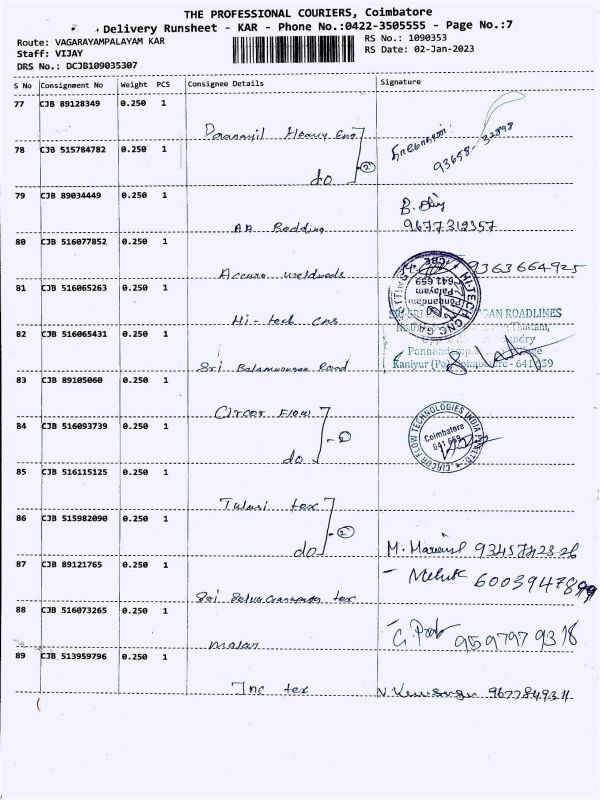 THE PROFESSIONAL COURIERS, Coimbatore
Delivery Runsheet - KAR - Phone No.:0422-3505555 - Page No.:7
Route: VAGARAYAMPALAYAM KAR
RS No.: 1090353
Staff: VIJAY
RS Date: 02-Jan-2023
DRS No.: DCJB109035307
S No Consignment No Weight PCS Consignee Details Signature
77 CJB 89128349 0.250 1
Heavy Eng
78 CJB 515784782 0.250 1
do 2
93658-32898
79 CJB 89034449 0.250 1
AA Bedding
9677312357
80 CJB 516077852 0.250 1
Accura weldrods
9363664925
81 CJB 516065263 0.250 1
Hi-tech cnc
HI-TECH CNC
Pongandam
Palayam
641 659
CBE
82 CJB 516065431 0.250 1
Sri Balamurugan Road
SRI SRI GAN ROADLINES
Thottam,
Kaniyur (Po) - 641 659
83 CJB 89105060 0.250 1
Circor Flow
84 CJB 516093739 0.250 1
do
CIRCOR FLOW TECHNOLOGIES INDIA
Coimbatore
641 659
85 CJB 516115125 0.250 1
Tulasi tex
86 CJB 515982090 0.250 1
do 2
M.
87 CJB 89121765 0.250 1
Sri Selva Ganapathy tex
6003947899
88 CJB 516073265 0.250 1
9597979318
89 CJB 513959796 0.250 1
Inc tex
9677849311